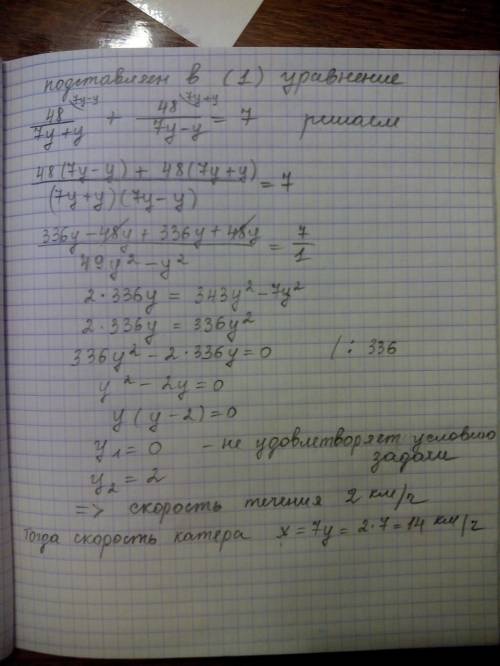 подставляем в (1) уравнение
48/(7y+y) ^(7y-y) + 48/(7y-y) ^(7y+y) = 7 решаем
(48(7y-y) + 48(7y+y))/((7y+y)(7y-y)) = 7
(336y-48y+336y+48y)/(49y²-y²) = 7/1
2·336y = 343y²-7y²
2·336y = 336y²
336y²-2·336y=0 /: 336
y²-2y=0
y(y-2)=0
y₁=0 - не удовлетворяет условию
задачи
y₂=2
=> скорость течения 2 км/ч
Тогда скорость катера x=7y=2·7=14 км/ч